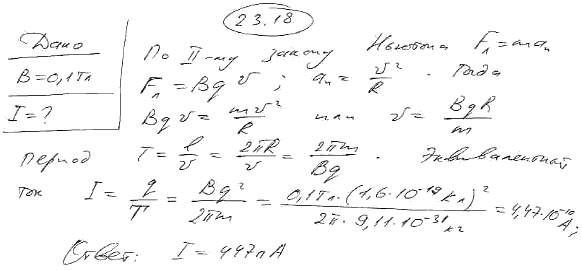 23.18
Дано
B=0,1Тл
I=?
По II-му закону Ньютона Fл=maн
Fл=Bqv; aн=v²/R. Тогда
Bqv=mv²/R или v=BqR/m
Период T=l/v=2πR/v=2πm/Bq. Эквивалентный
ток I=q/T=Bq²/2πm=0,1Тл·(1,6·10⁻¹⁹Кл)²/2π·9,11·10⁻³¹кг=4,47·10⁻¹⁰A;
Ответ: I=447пА